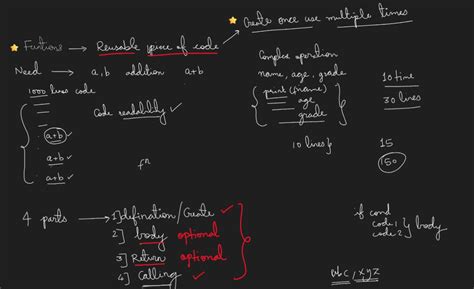 Functions → Reusable piece of code → Create once use multiple times
Need → a, b addition a+b
1000 lines code
Code readability ✓
a+b ✓
a+b ✓
a+b ✓
fⁿ
Complex operation
name, age, grade
print(name)
age
grade
10 time
30 lines
10 lines}
15
150
4 parts → 1] defination/Create ✓
2] body optional
3] Return optional
4] Calling ✓
if cond
code 1
code 2 } body
abc, xyz